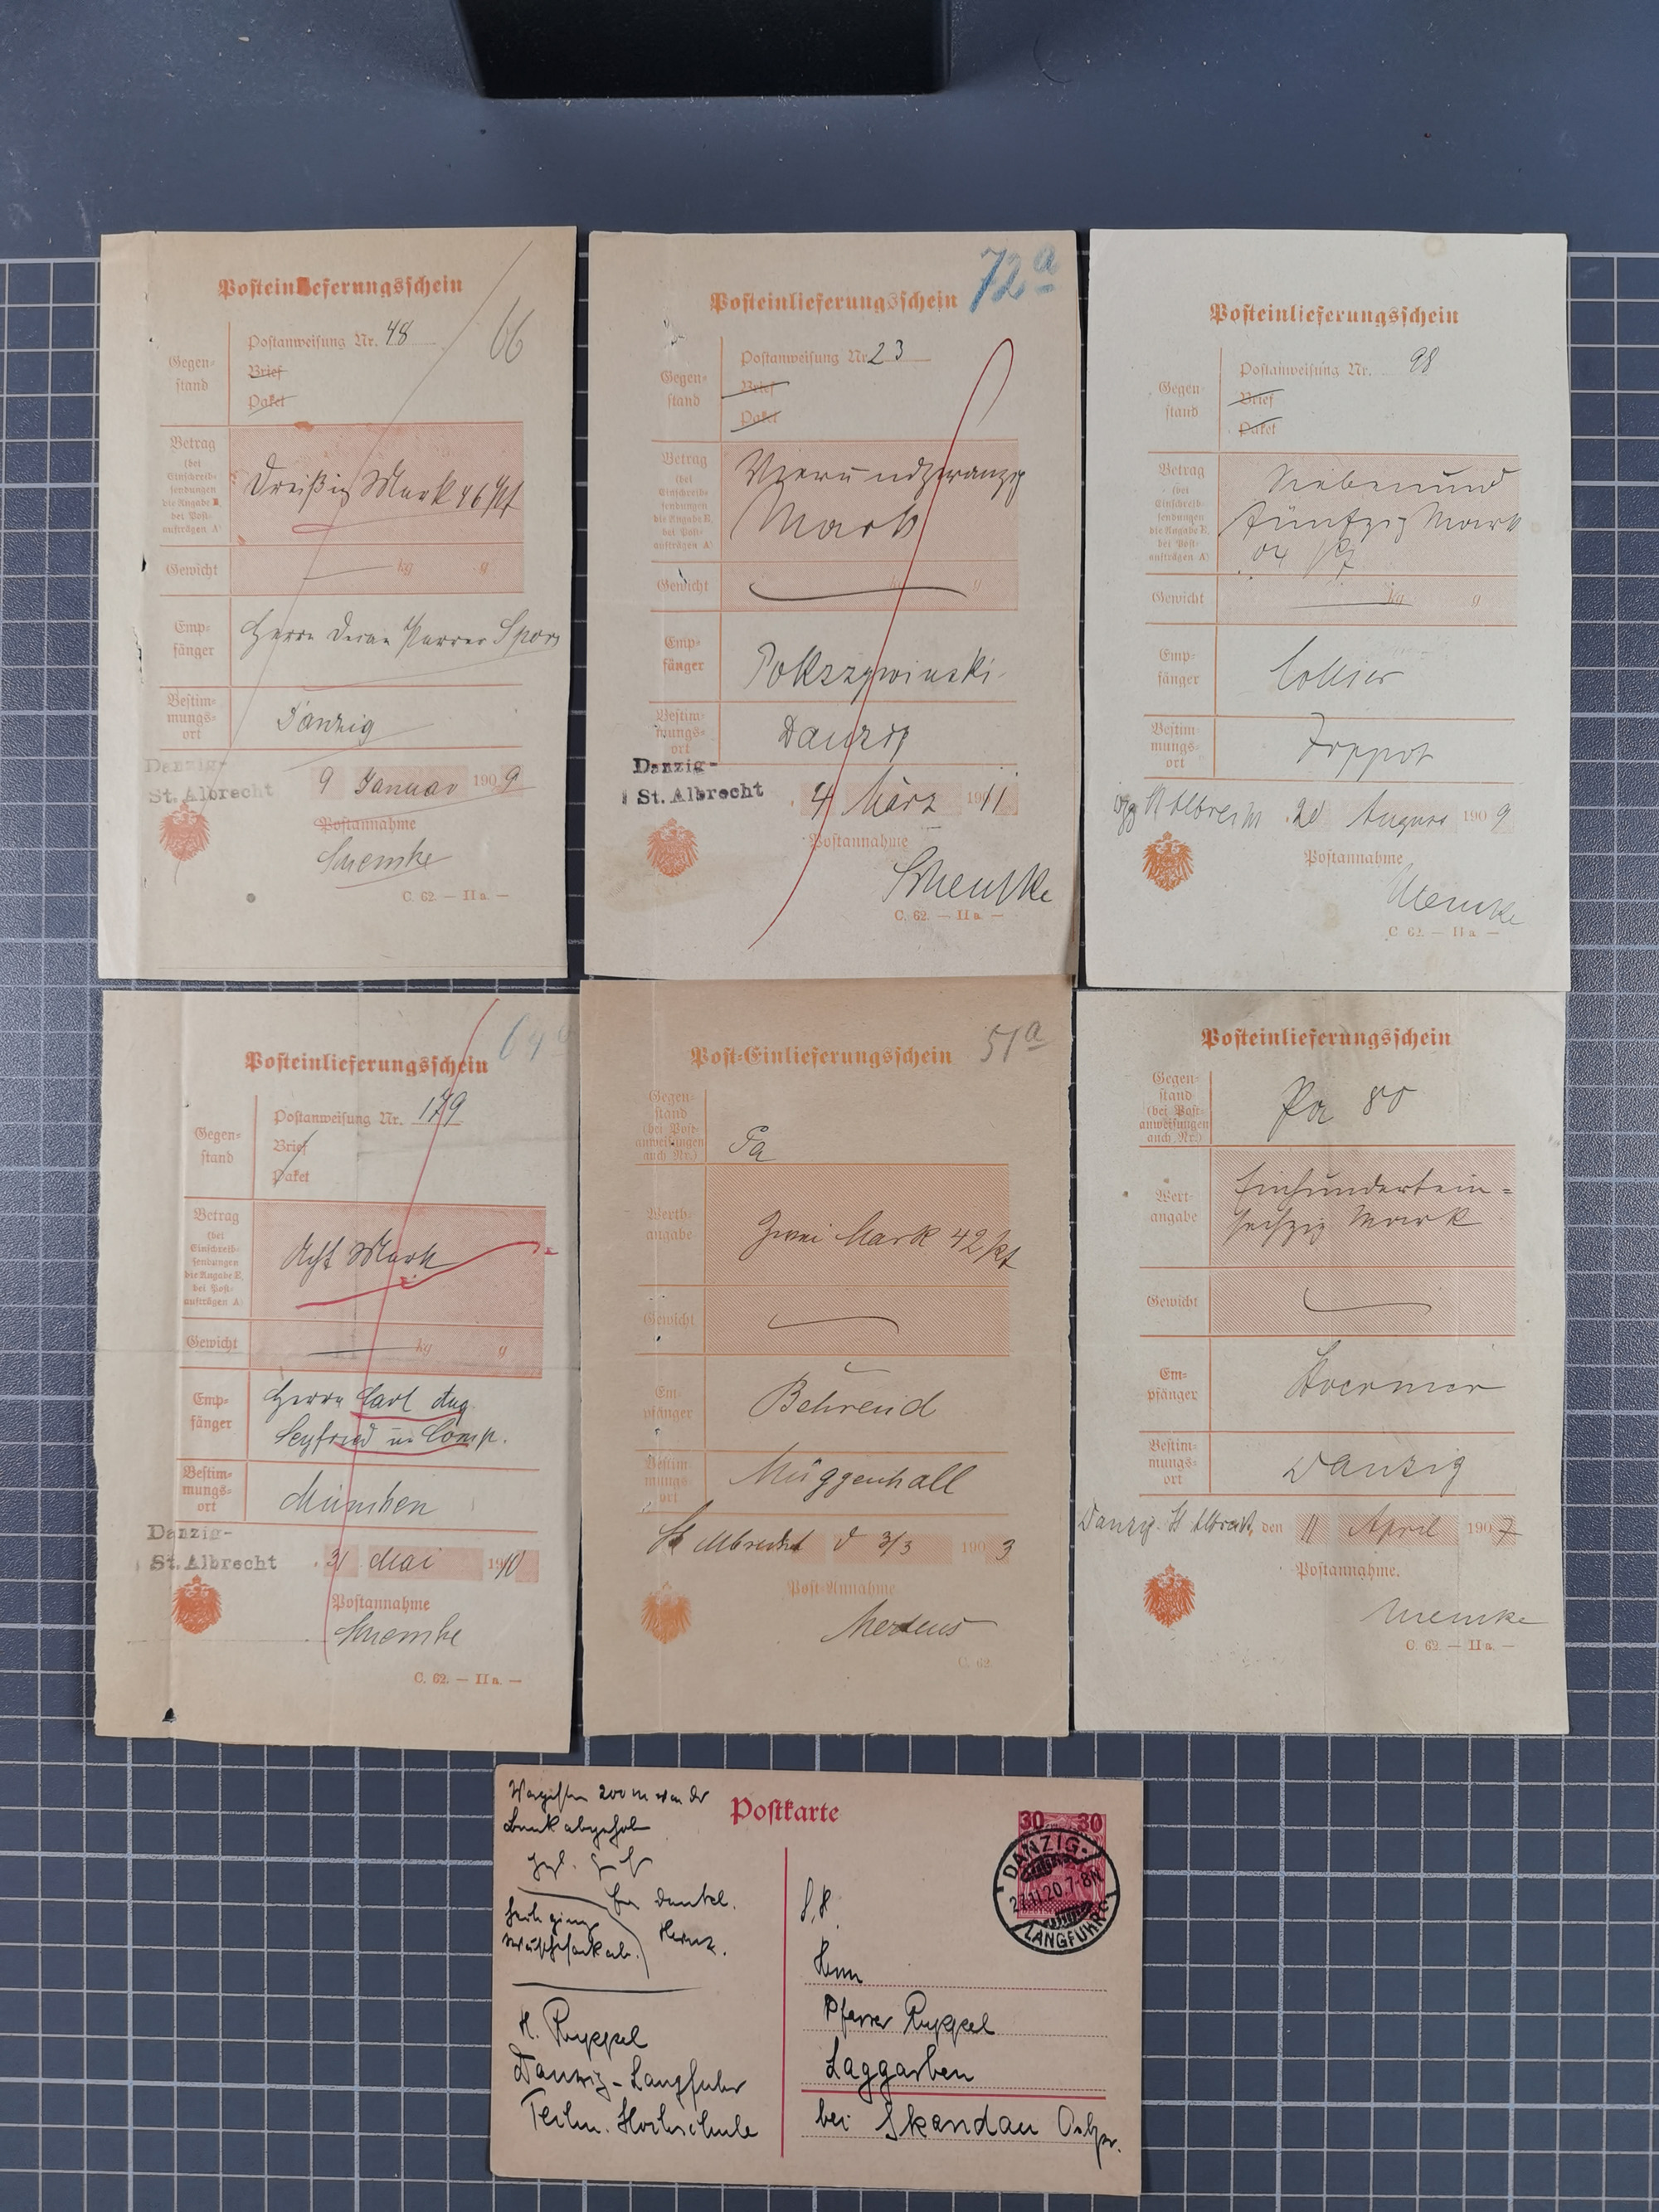 Posteinlieferungsschein
66
Gegen-
stand
Postanweisung Nr. 48
Brief
Paket
Betrag
(bei
Einschreib-
sendungen
die Angabe E,
bei Post-
aufträgen A)
Dreißig Mark 46 Pf
Gewicht
kg g
Emp-
fänger
Herrn
Bestim-
mungs-
ort
Danzig
Danzig-
St. Albrecht
9 Januar 1909
Postannahme
C. 62. — II a. —
Posteinlieferungsschein
72a
Gegen-
stand
Postanweisung Nr. 23
Brief
Paket
Betrag
(bei
Einschreib-
sendungen
die Angabe E,
bei Post-
aufträgen A)
Vierundzwanzig
Mark
Gewicht
kg g
Emp-
fänger
Pokszywinski
Bestim-
mungs-
ort
Danzig
Danzig-
St. Albrecht
4 März 1911
Postannahme
C. 62. — II a. —
Posteinlieferungsschein
Gegen-
stand
Postanweisung Nr. 98
Brief
Paket
Betrag
(bei
Einschreib-
sendungen
die Angabe E,
bei Post-
aufträgen A)
Siebenund
fünfzig Mark
04 Pf
Gewicht
kg g
Emp-
fänger
Bestim
mungs-
ort
Zoppot
St Albrecht 20 August 1909
Postannahme
C. 62. — II a. —
Posteinlieferungsschein
64a
Gegen-
stand
Postanweisung Nr. 179
Brief
Paket
Betrag
(bei
Einschreib-
sendungen
die Angabe E,
bei Post-
aufträgen A)
Acht Mark
Gewicht
kg g
Emp-
fänger
Herrn Carl Aug.
Seyfried u. Comp.
Bestim-
mungs-
ort
München
Danzig-
St. Albrecht
31 Mai 1910
Postannahme
C. 62. — II a. —
Post-Einlieferungsschein
51a
Gegen-
stand
(bei Post-
anweisungen
auch Nr.)
Pa
Werth-
angabe
Zwei Mark 42 Pf
Gewicht
Em-
pfänger
Behrend
Bestim
mungs-
ort
Müggenhall
St Albrecht d 3/3 1903
Post-Annahme
Mertens
C. 62.
Posteinlieferungsschein
Gegen-
stand
(bei Post-
anweisungen
auch Nr.)
Pa 80
Wert-
angabe
Einhundertein-
sechzig Mark
Gewicht
Em-
pfänger
Bestim-
mungs-
ort
Danzig
Danzig-St Albrecht, den 11 April 1907
Postannahme.
C. 62. — II a. —
Postkarte
30 30
DANZIG-
27.11.20.7-8N
LANGFUHR
200 M von der
Bank abgeholt
Dunkel.
H. Ruppel
Danzig-Langfuhr
Techn. Hochschule
Herrn
Pfarrer Ruppel
Laggarben
bei Skandau Ostpr.